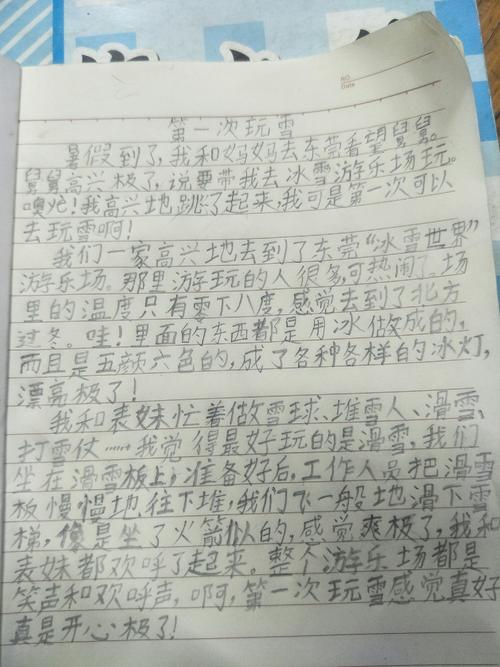 NO.
Date
第一次玩雪
暑假到了,我和妈妈去东莞看望舅舅。
舅舅高兴极了,说要带我去冰雪游乐场玩。
噢炮!我高兴地跳了起来,我可是第一次可以
去玩雪啊!
我们一家高兴地去到了东莞“冰雪世界”
游乐场。那里游玩的人很多,可热闹了,场
里的温度只有零下八度,感觉去到了北方
过冬。哇!里面的东西都是用冰做成的,
而且是五颜六色的,成了各种各样的冰灯,
漂亮极了!
我和表妹忙着做雪球、堆雪人、滑雪、
打雪仗……我觉得最好玩的是滑雪,我们
坐在滑雪板上,准备好后,工作人员把滑雪
板慢慢地往下堆,我们飞一般地滑下雪
梯,像是坐了火箭似的,感觉爽极了,我和
表妹都欢呼了起来。整个游乐场都是
笑声和欢呼声,啊,第一次玩雪感觉真好
真是开心极了!